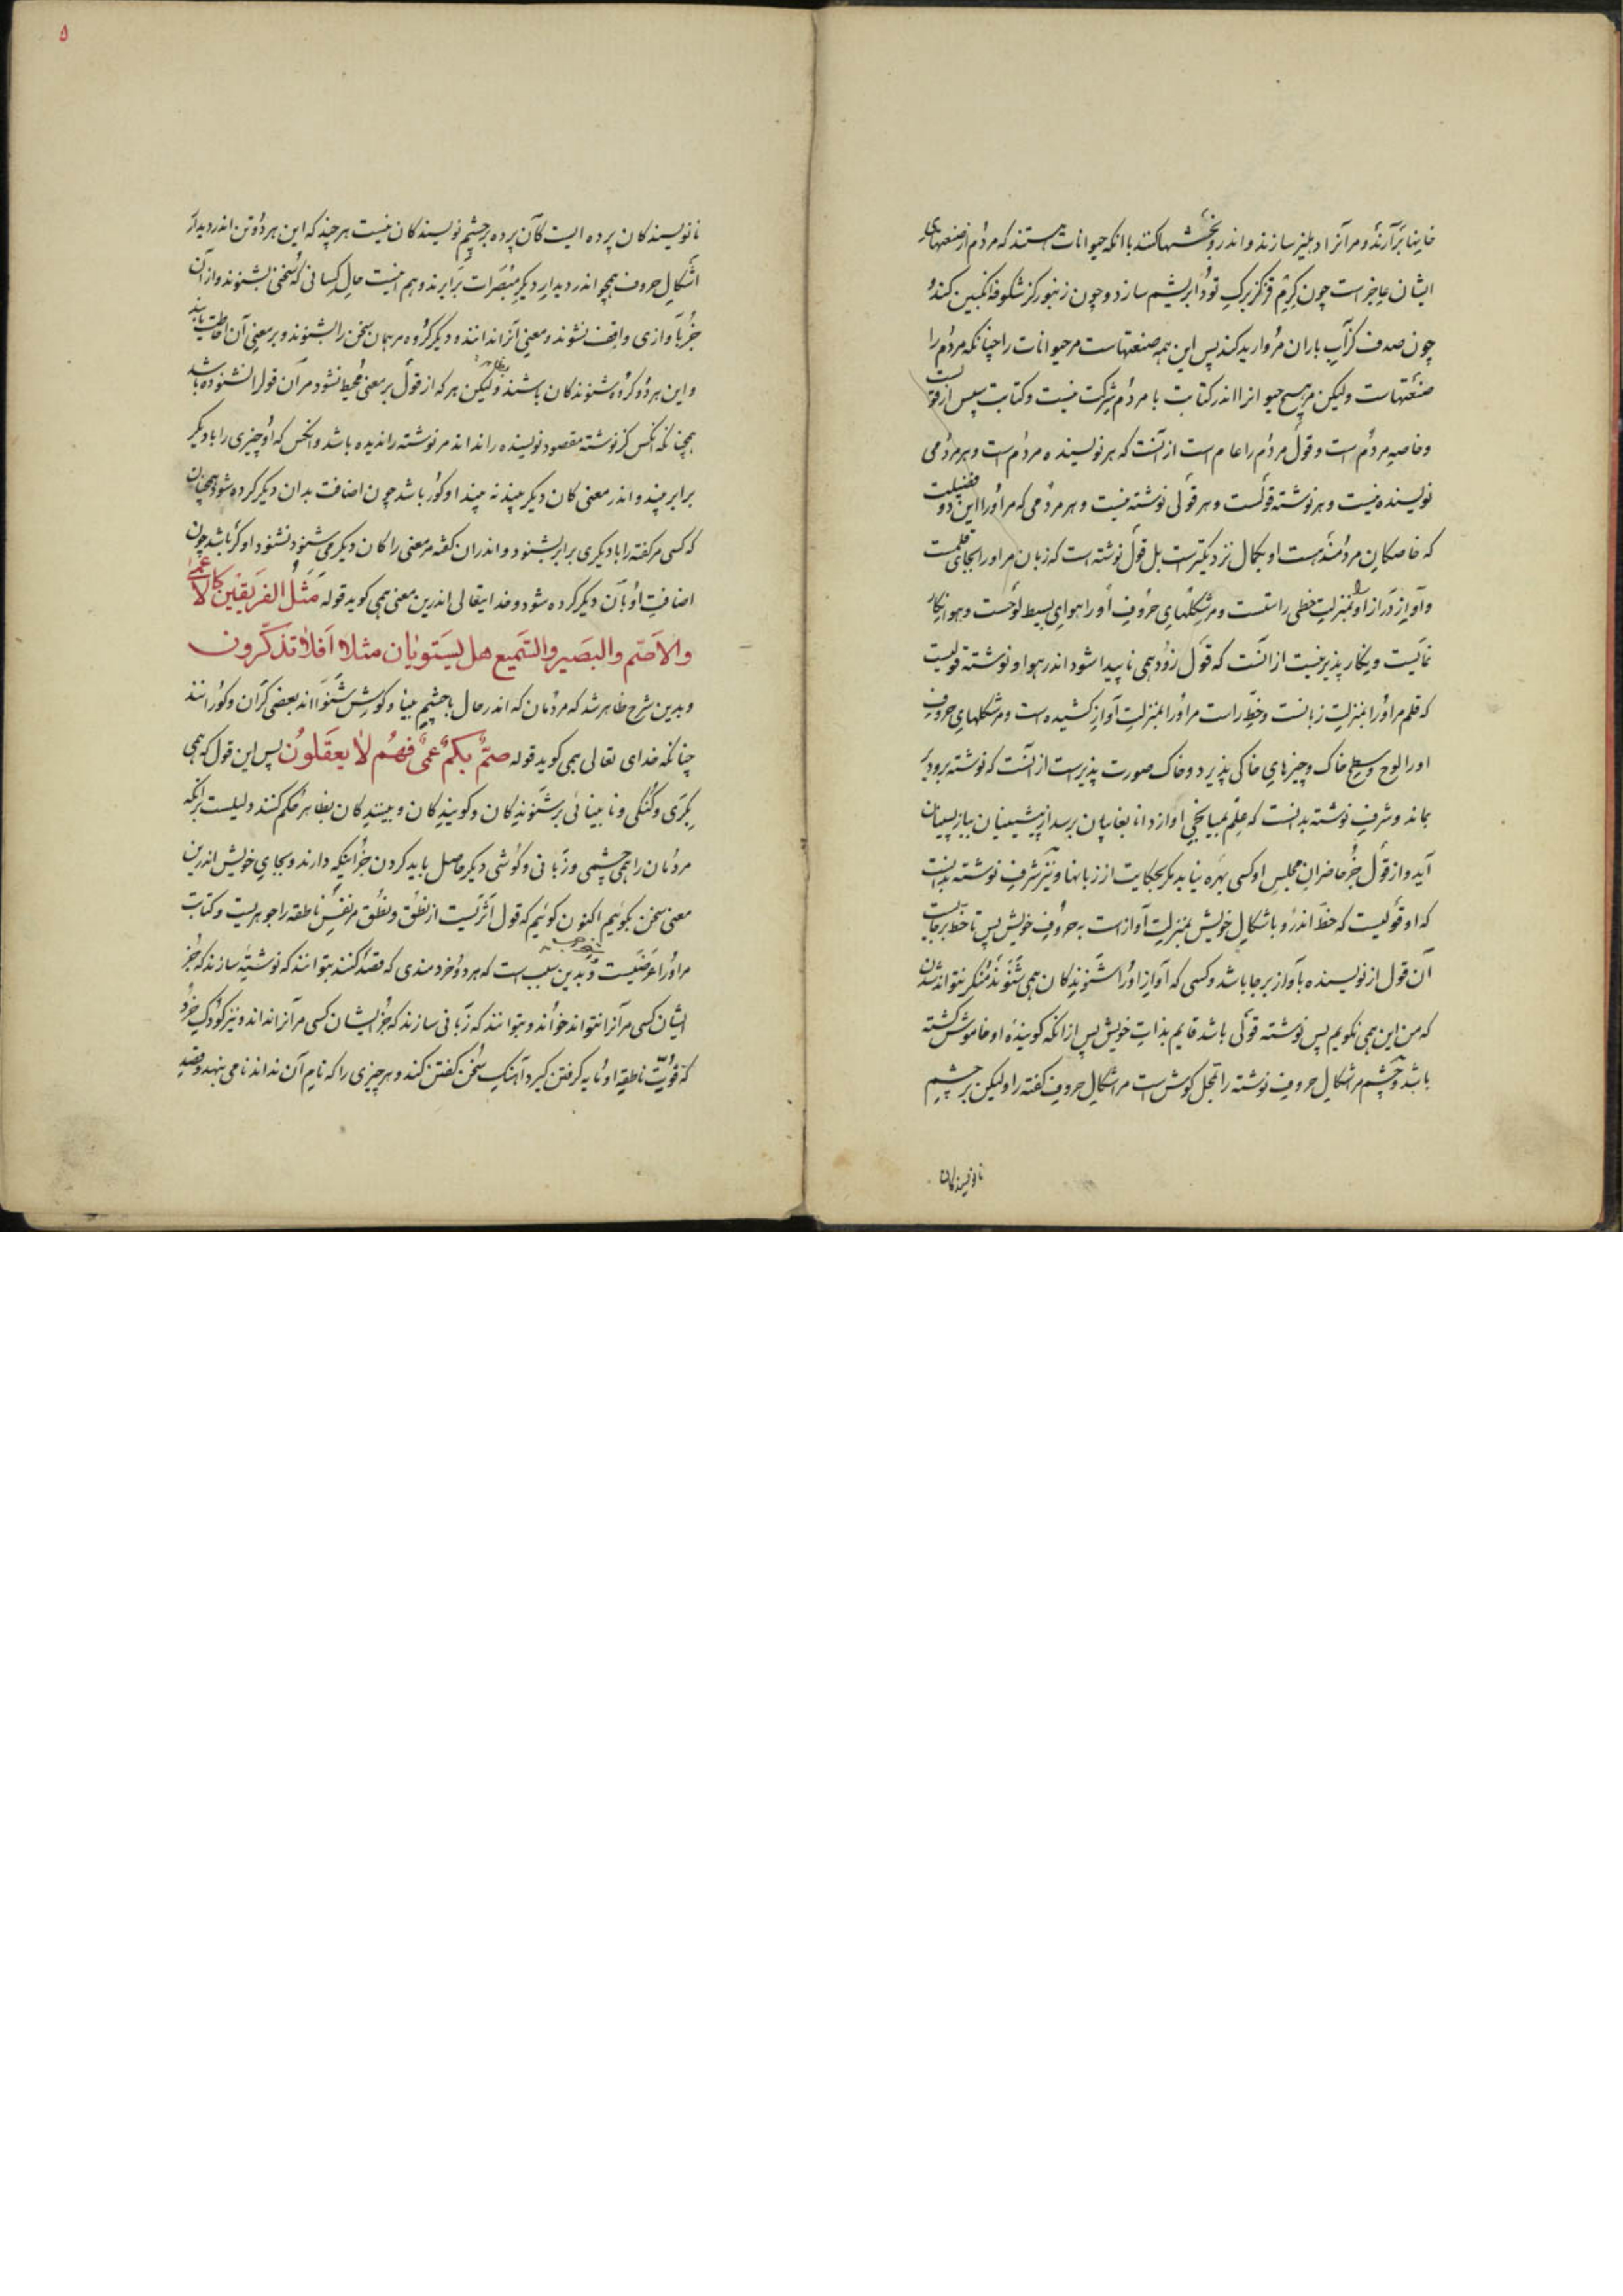 خاینها برآرند و مرآنرا دهلیز سازند و اندرو بخششها کنند با انکه حیوانات هستند که مردم از صنعتهای
ایشان عاجز است چون کرم قز کز برک تود ابریشم سازد و چون زنبور کز شکوفه انکبین کند و
چون صدف کز آب باران مروارید کند پس این همه صنعتهاست مر حیوانات را چنانکه مردم را
صنعتهاست ولیکن مر هیچ حیوانرا اندر کتابت با مردم شرکت نیست و کتابت سپس از قولست
و خاصه مردم است و قول مردم را عام است از آنست که هر نویسنده مردم است و هر مردمی
نویسنده نیست و هر نوشته قولست و هر قولی نوشته نیست و هر مردمی که مر اورا این دو فضیلت
که خاصکان مردمند هست او بکمال نزدیکترست بل قول نوشته است که زبان مر اورا بجای قلمست
و آواز دراز او بمنزلت خطی راستست و مر شکلهای حروف اورا هوای بسیط لوحست و هوا نکار
نمایست و نکار پذیر نیست از آنست که قول زود همی ناپیدا شود اندر هوا و نوشته قولیست
که قلم مر اورا بمنزلت زبانست و خط راست مر اورا بمنزلت آواز کشیده است و مر شکلهای حروف
اورا لوح و سطح خاک و چیزهای خاکی پذیرد و خاک صورت پذیرست از آنست که نوشته برو دیر
بماند و شرف نوشته بدانست که علم بمیانجی او از دانا بغایبان برسد از پیشینیان بباز پسینان
آید و از قول جز حاضران مجلس او کسی بهره نیابد مکر بحکایت از زبانها و نیز شرف نوشته بدانست
که او قولیست که خط اندرو با شکال خویش بمنزلت آواز است به حروف خویش پس تا خط برجایست
آن قول از نویسنده بآواز برجا باشد و کسی که آواز اورا شنوندکان همی شنوند منکر نتواند شدن
که من این همی نکویم پس نوشته قولی باشد قایم بذات خویش پس از انکه کوینده او خاموش کشته
باشد و چشم مر اشکال حروف نوشته را بمحل کوش است مر اشکال حروف کفته را ولیکن بر چشم
نانویسندکان
۵
نانویسندکان پرده ایست کآن پرده بر چشم نویسندکان نیست هر چند که این هر دو تن اندر دیدار
اشکال حروف همچو اندر دیدار دیکر مبصرات برابرند و هم اینست حال کسانی که سخنی بشنوند و از آن
جز بآوازی واقف نشوند و معنی آنرا ندانند و دیکر کروه مر همان سخن را بشنوند و بر معنی آن احاطت یابند
و این هر دو کروه شنوندکان باشند بظاهر ولیکن هر که از قول بر معنی محیط نشود مر آن قول را نشنوده باشد
همچنانکه آنکس کز نوشته مقصود نویسنده را نداند مر نوشته را ندیده باشد و انکس که او چیزی را با دیکر
برابر بیند و اندر معنی کان دیکر بیند نه بیند او کور باشد چون اضافت بدان دیکر کرده شود همچنان
که کسی مر کفته را با دیکری برابر بشنود و اندران کفته مر معنی را کان دیکر می شنود نشنود او کر باشد چون
اضافت او بآن دیکر کرده شود و خدایتعالی اندرین معنی همی کوید قوله مَثَلُ الفَریقَینِ کَالاَعمی
والاَصَمِّ والبَصیرِ والسَّمیعِ هل یَستَوِیانِ مثلا اَفَلا تذکّرون
و بدین شرح ظاهر شد که مردمان که اندر حال با چشم بینا و کوش شنوااند بعضی کران و کورانند
چنانکه خدای تعالی همی کوید قوله صمٌّ بکمٌ عمیٌ فهُم لا یعقلونَ پس این قول که همی
بکری و کنکی و نابینائی بر شنوندکان و کویندکان و بینندکان بظاهر حکم کنند دلیلست برانکه
مردمان را همی چشمی و زبانی و کوشی دیکر حاصل باید کردن جز اینکه دارند و بجای خویش اندرین
معنی سخن بکوئیم اکنون کوئیم که قول اثریست از نطق و نطق مر نفس ناطقه را جوهریست و کتابت
مر اورا عرضیست و بدین سبب است که هر دو خردمندی که قصد کنند بتوانند که نوشتهٔ سازند که جز
ایشان کسی مر آنرا نتواند خواند و بتوانند که زبانی سازند که جز ایشان کسی مر آنرا نداند و نیز کودک خرد
که قوت ناطقه او مایه کرفتن کیرد آهنک سخن کفتن کند و هر چیزی را که نام آن نداند نامی بنهد و قصد